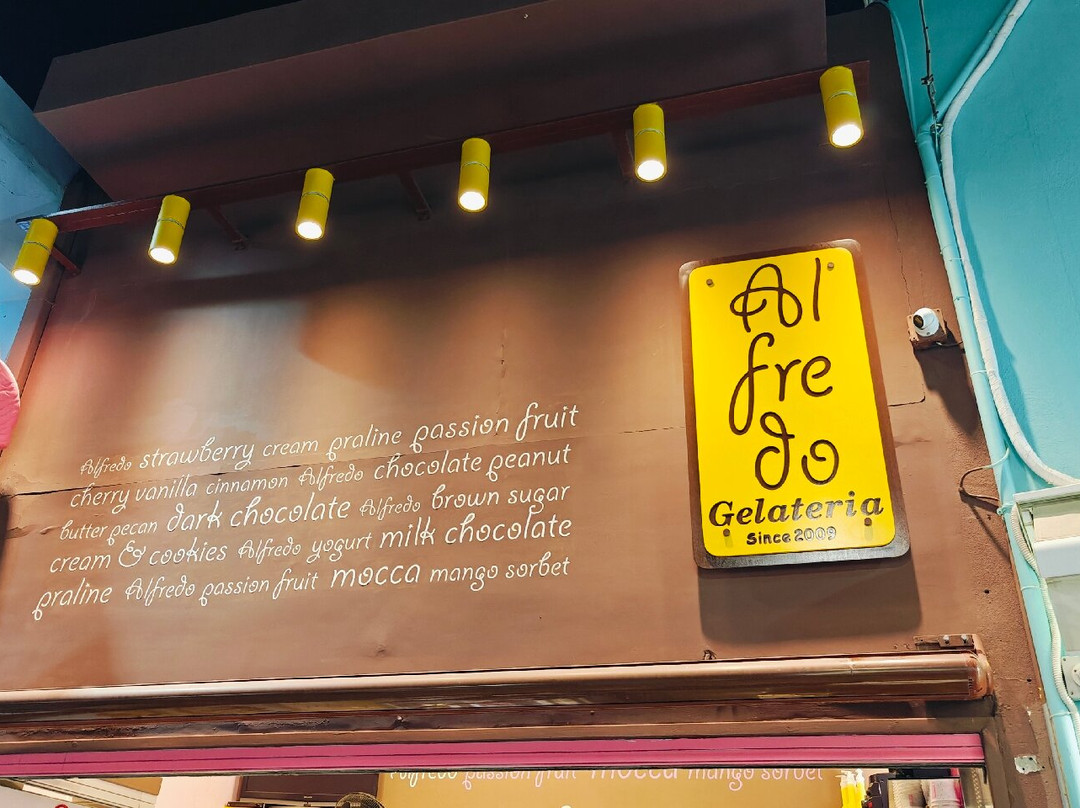 Alfredo strawberry cream praline passion fruit
cherry vanilla cinnamon Alfredo chocolate peanut
butter pecan dark chocolate Alfredo brown sugar
cream & cookies Alfredo yogurt milk chocolate
praline Alfredo passion fruit mocca mango sorbet
Al
fre
do
Gelateria
Since 2009
Alfredo passion fruit mocca mango sorbet